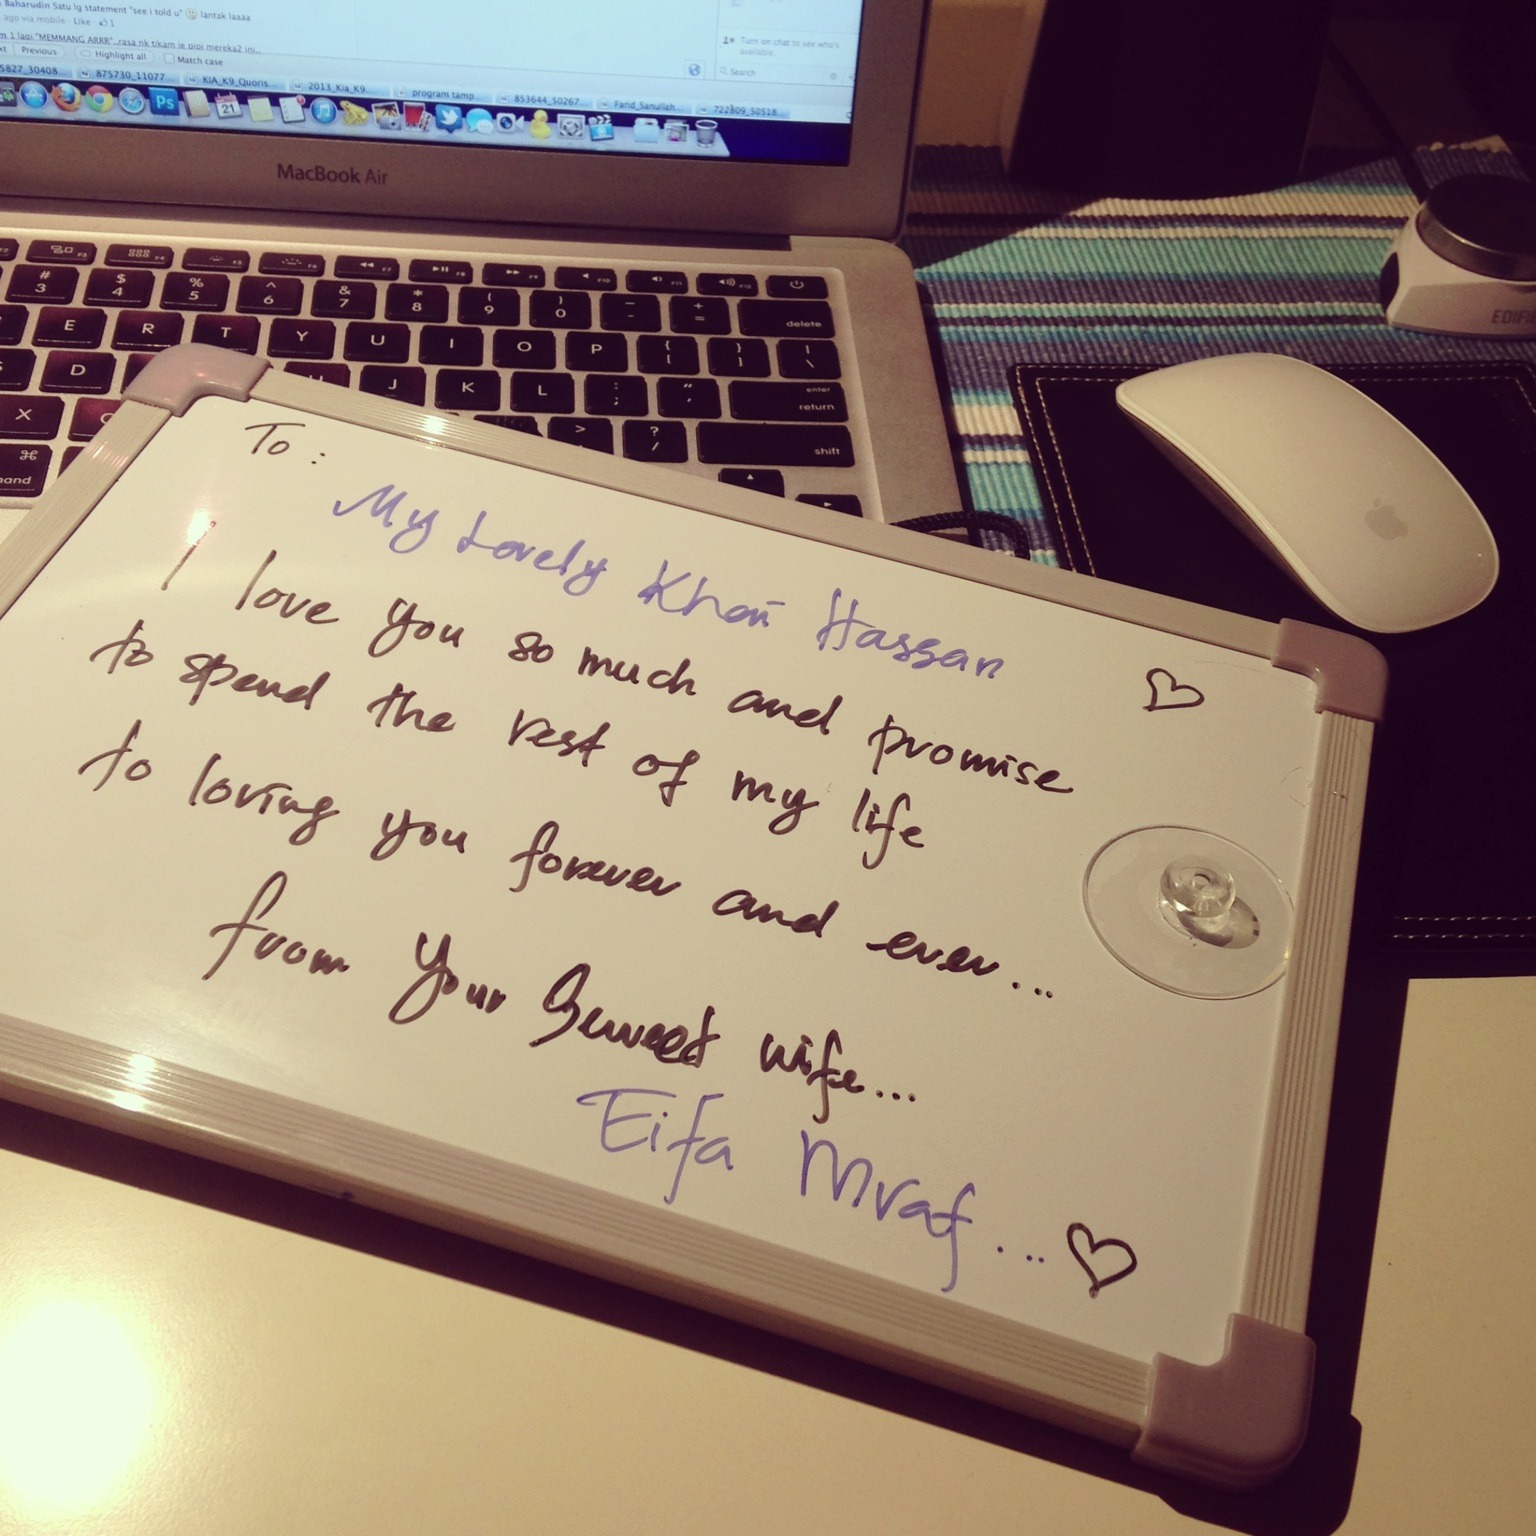 Baharudin Satu lg statement "see i told u" lantak laaaa
ago via mobile · Like · 1
1 lagi "MEMMANG ARRR"..rasa nk tikam je pipi mereka2 ini..
Previous Highlight all Match case
Turn on chat to see who's
available.
Search
5827_30408... 875730_11077... KIA_K9_Quoris... 2013_Kia_K9.... program tamp... 853644_50267... Farid_Sanullah... 722809_50518...
Ps 21
MacBook Air
F4 F5 F6 F7 F8 F9 F10 F11 F12
# 3 $ 4 % 5 ^ 6 & 7 * 8 ( 9 ) 0 - + = delete
E R T Y U I O P { [ } ] | \
D J K L : ; " ' enter return
X > ? / shift
⌘
EDIFI
To :
My Lovely Khai Hassan
I love you so much and promise
to spend the rest of my life
to loving you forever and ever...
from your Sweet wife...
Eifa Mraf...